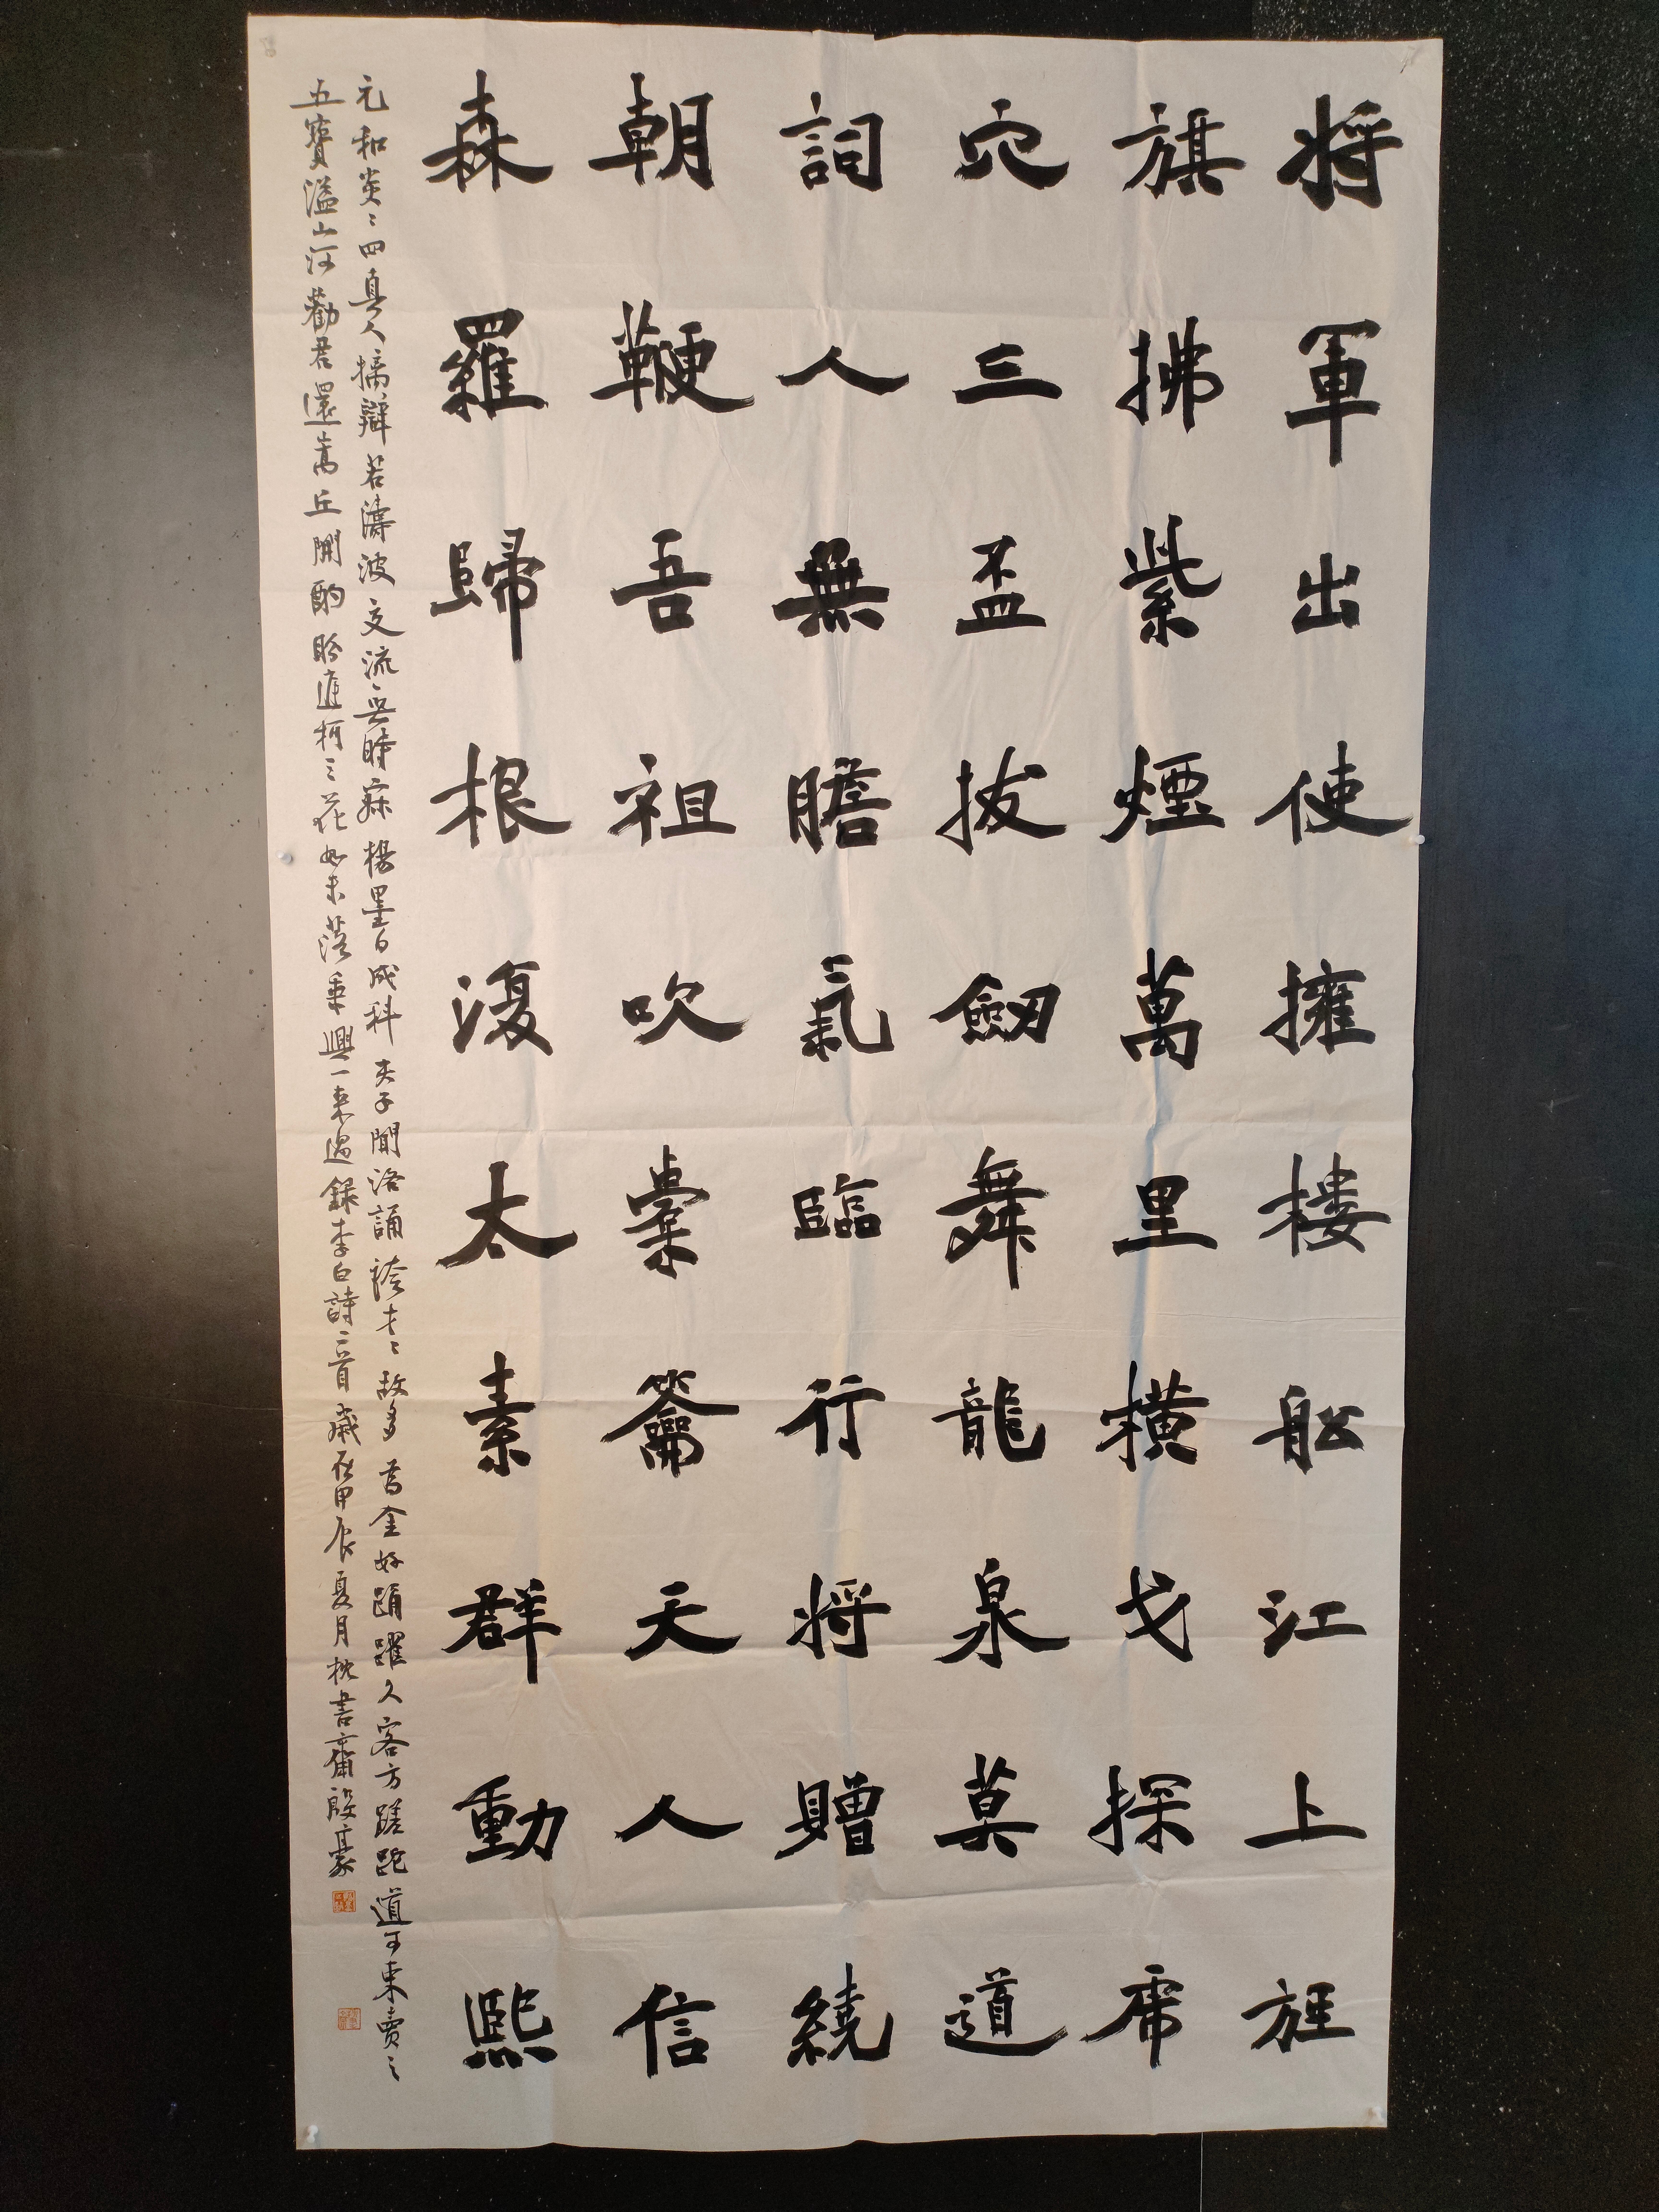 将軍出使擁樓舩江上旌
旗拂紫煙萬里橫戈探虎
穴三盃拔劒舞龍泉莫道
詞人無膽氣臨行将贈繞
朝鞭吾祖吹橐籥天人信
森羅歸根復太素群動熙
元和炎〻四真人摛辯若濤波交流無時寐楊墨日成科夫子聞洛誦誇才〻故多為金好踊躍久客方蹉跎道可束賣之
五寶溢山河勸君還嵩丘開酌盼庭柯三花如未落乘興一来過錄李白詩二首歲在甲辰夏月枕書齋殷豪